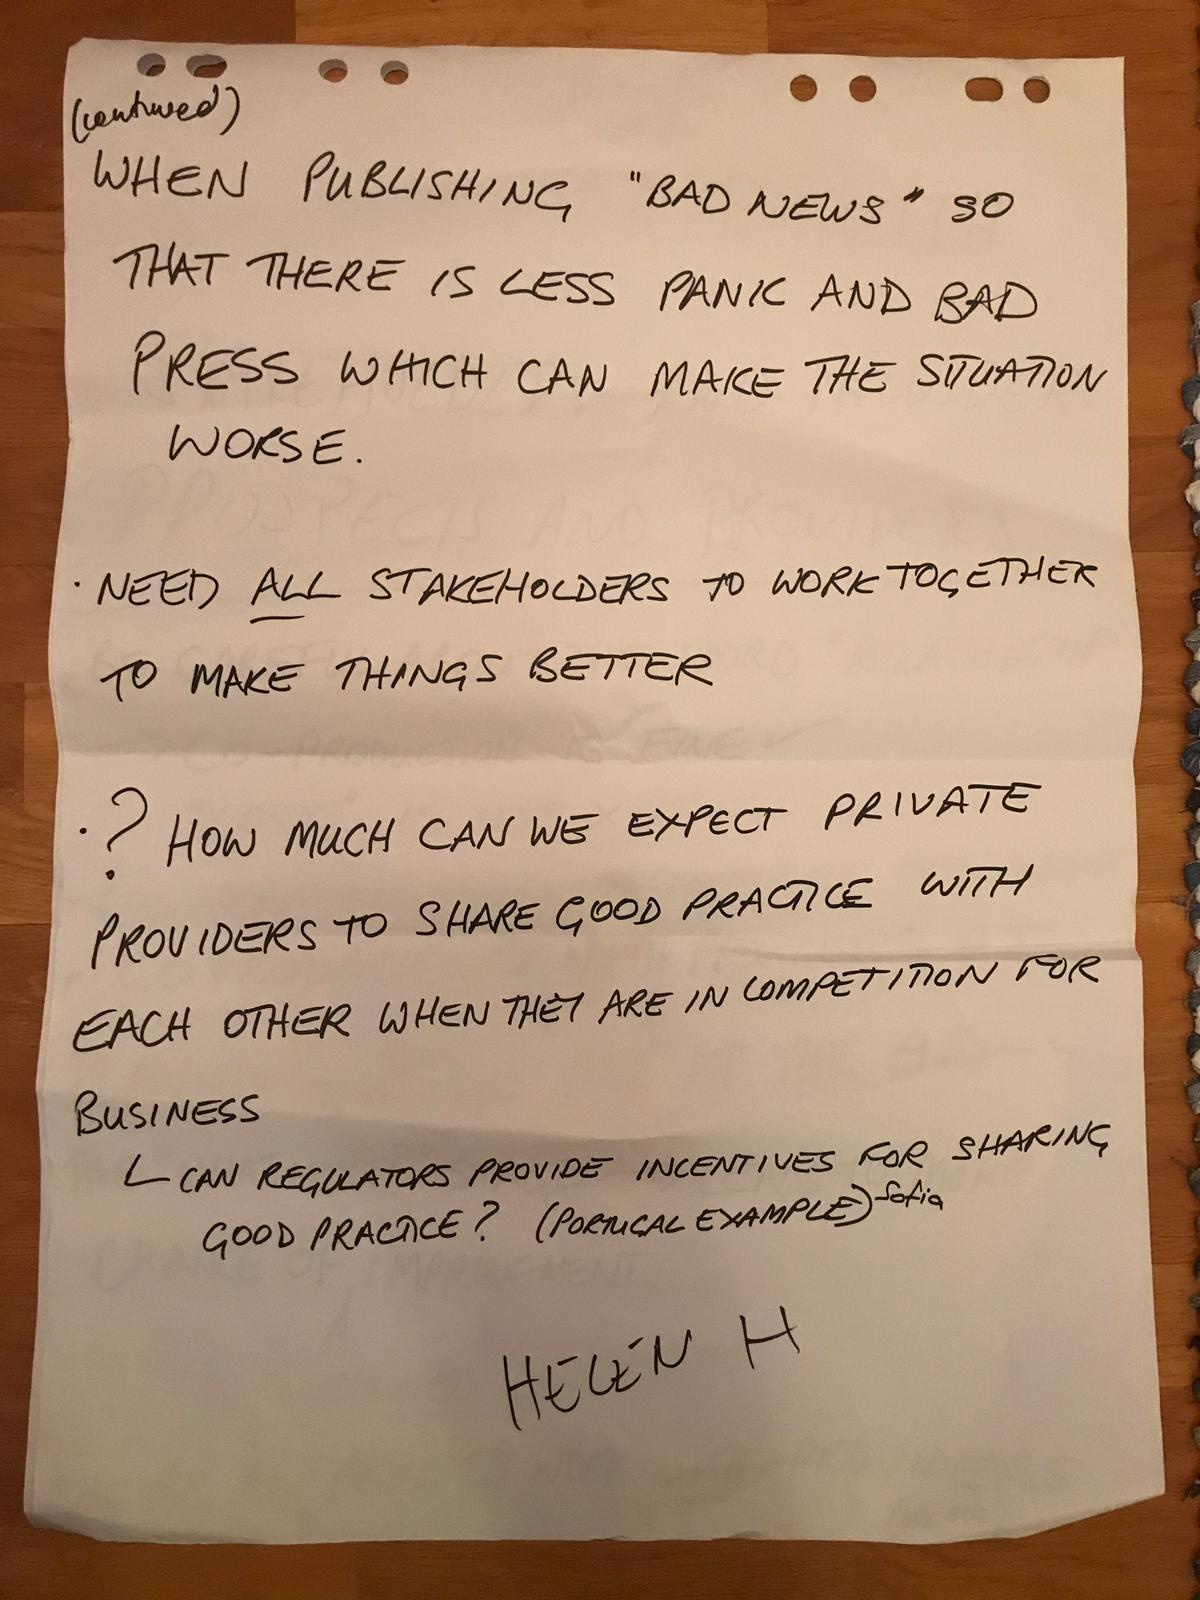 (continued)
WHEN PUBLISHING "BAD NEWS" SO
THAT THERE IS LESS PANIC AND BAD
PRESS WHICH CAN MAKE THE SITUATION
WORSE.
· NEED ALL STAKEHOLDERS TO WORK TOGETHER
TO MAKE THINGS BETTER
· ? HOW MUCH CAN WE EXPECT PRIVATE
PROVIDERS TO SHARE GOOD PRACTICE WITH
EACH OTHER WHEN THEY ARE IN COMPETITION FOR
BUSINESS
CAN REGULATORS PROVIDE INCENTIVES FOR SHARING
GOOD PRACTICE? (PORTUGAL EXAMPLE) Sofia
HELEN H